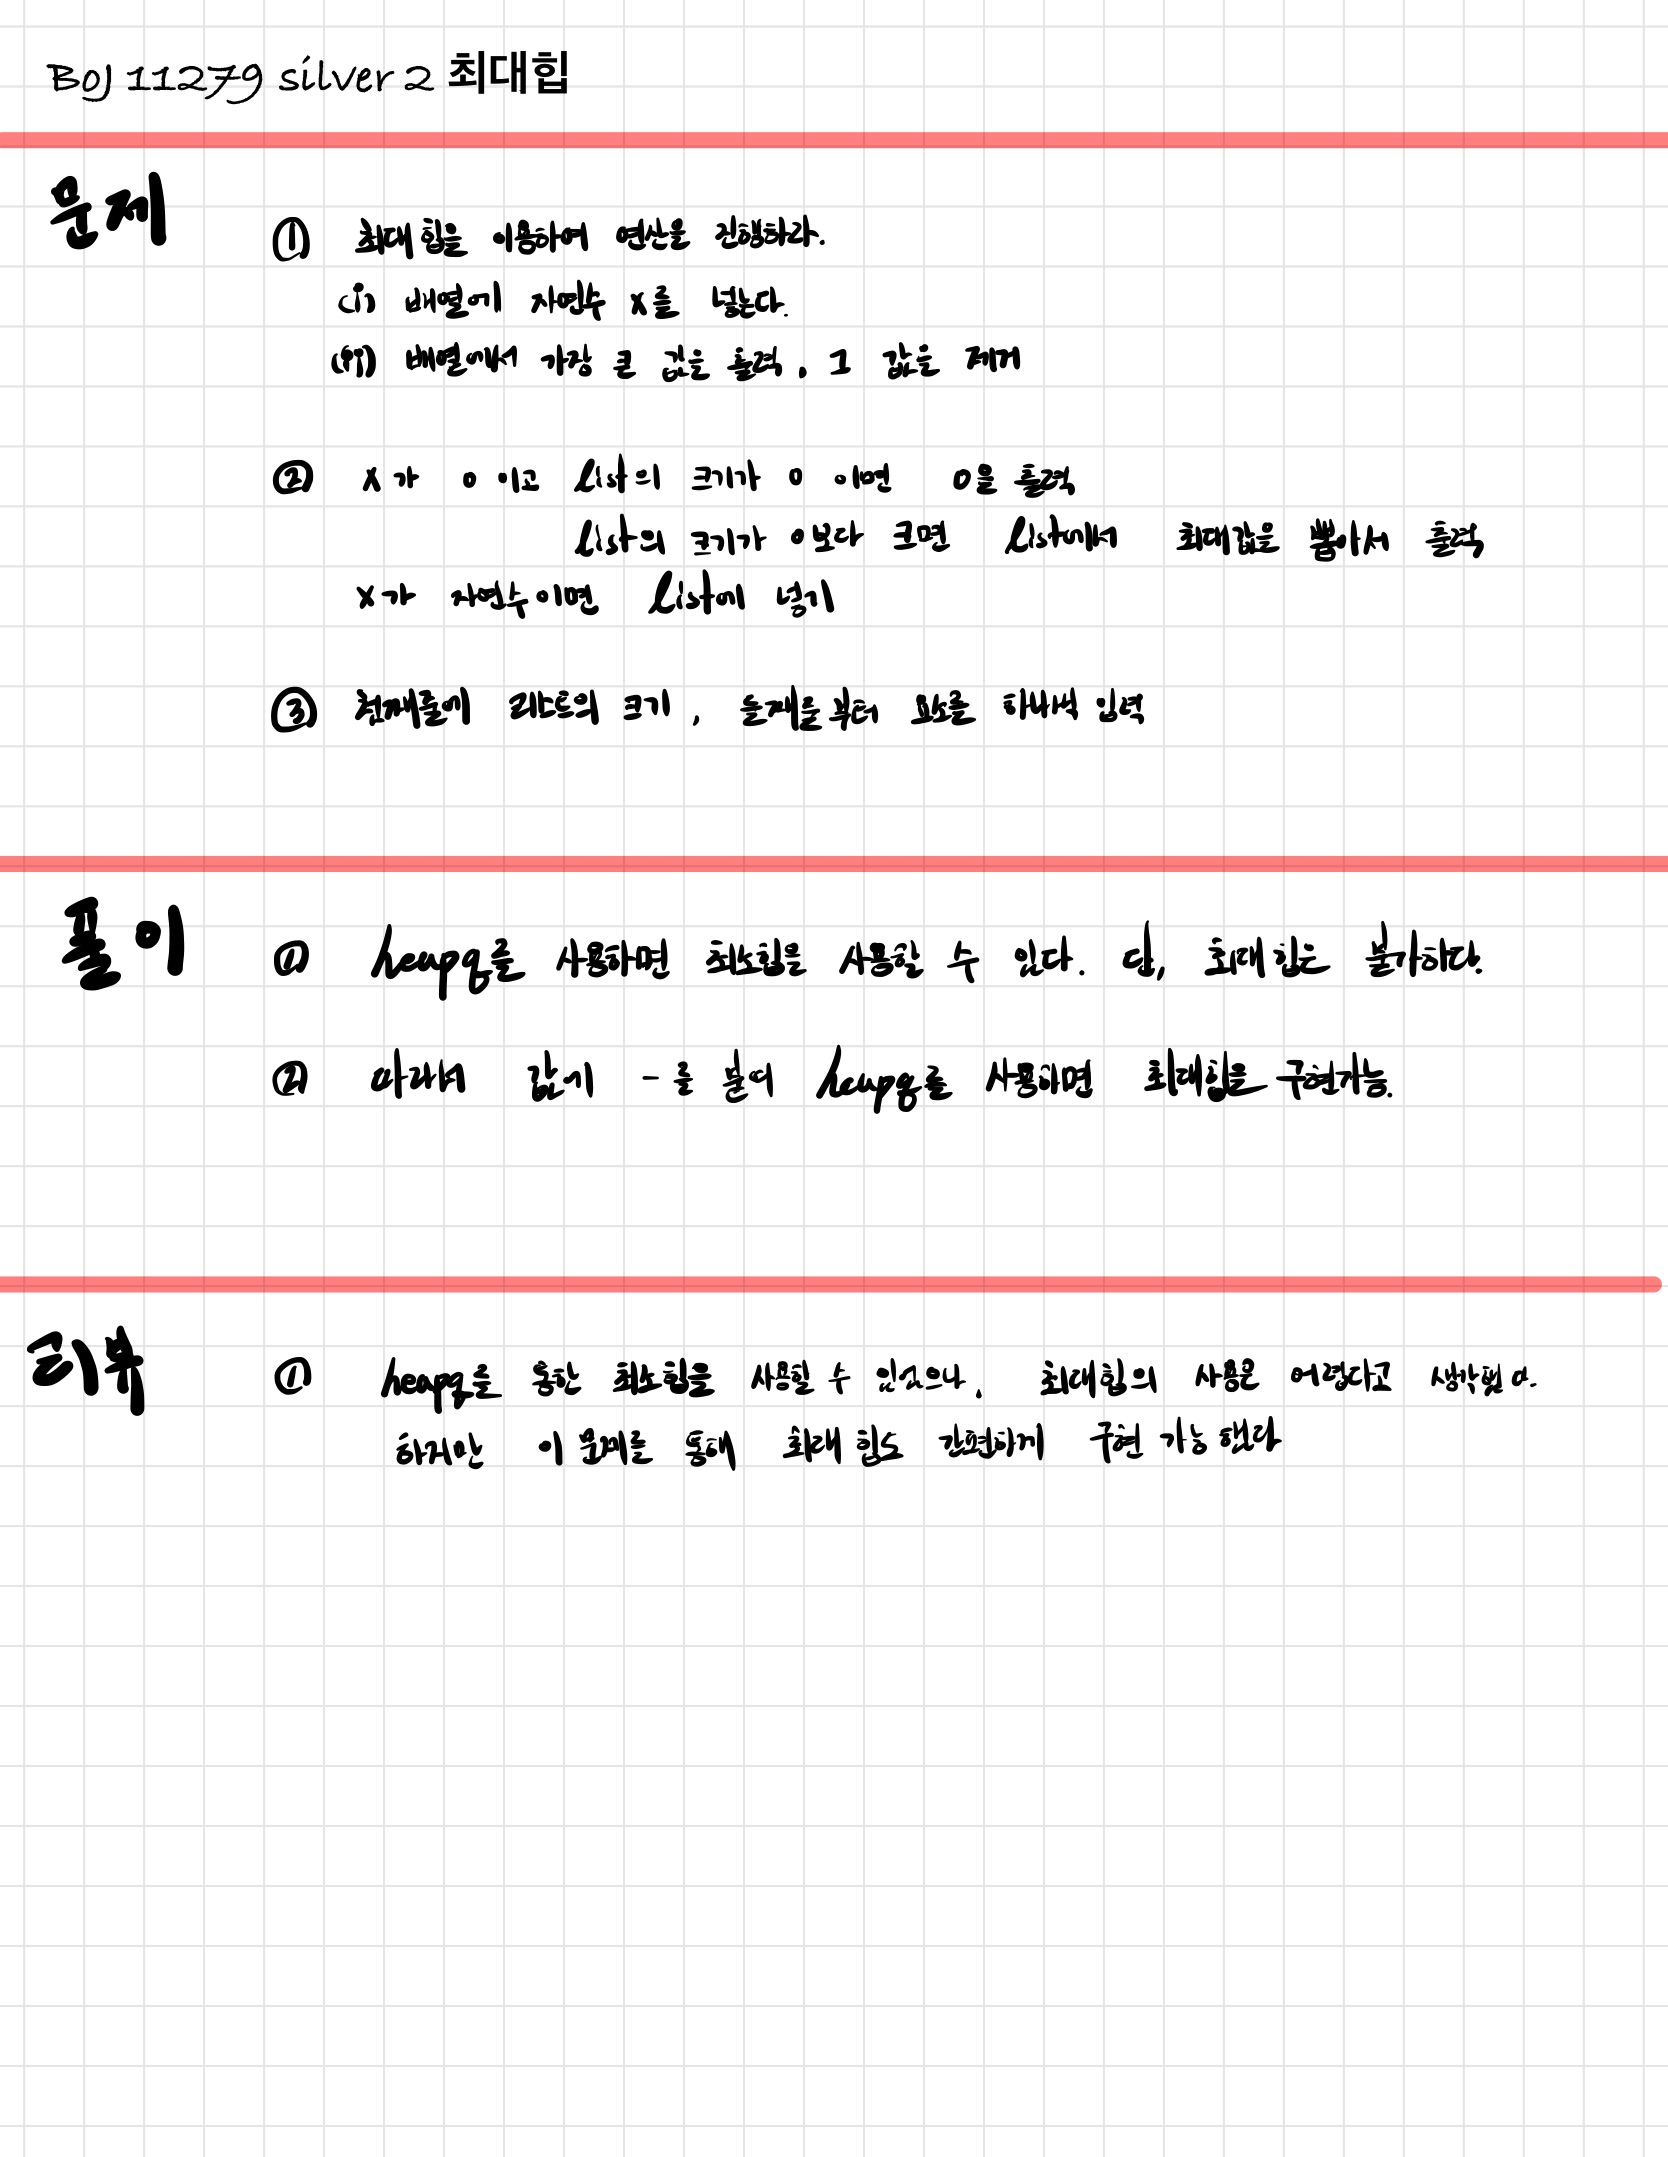 BOJ 11279 silver 2 최대힙
문제
① 최대힙을 이용하여 연산을 진행하라.
(i) 배열에 자연수 x를 넣는다.
(ii) 배열에서 가장 큰 값을 출력, 그 값을 제거
② x가 0 이고 list의 크기가 0 이면 0을 출력
list의 크기가 0보다 크면 list에서 최대값을 뽑아서 출력
x가 자연수이면 list에 넣기
③ 첫째줄에 리스트의 크기, 둘째줄부터 요소를 하나씩 입력
풀이
① heapq를 사용하면 최소힙을 사용할 수 있다. 단, 최대힙은 불가하다.
② 따라서 값에 -를 붙여 heapq를 사용하면 최대힙을 구현가능.
리뷰
① heapq를 통한 최소힙을 사용할 수 있었으나, 최대힙의 사용은 어렵다고 생각했다.
하지만 이 문제를 통해 최대힙도 간편하게 구현 가능했다